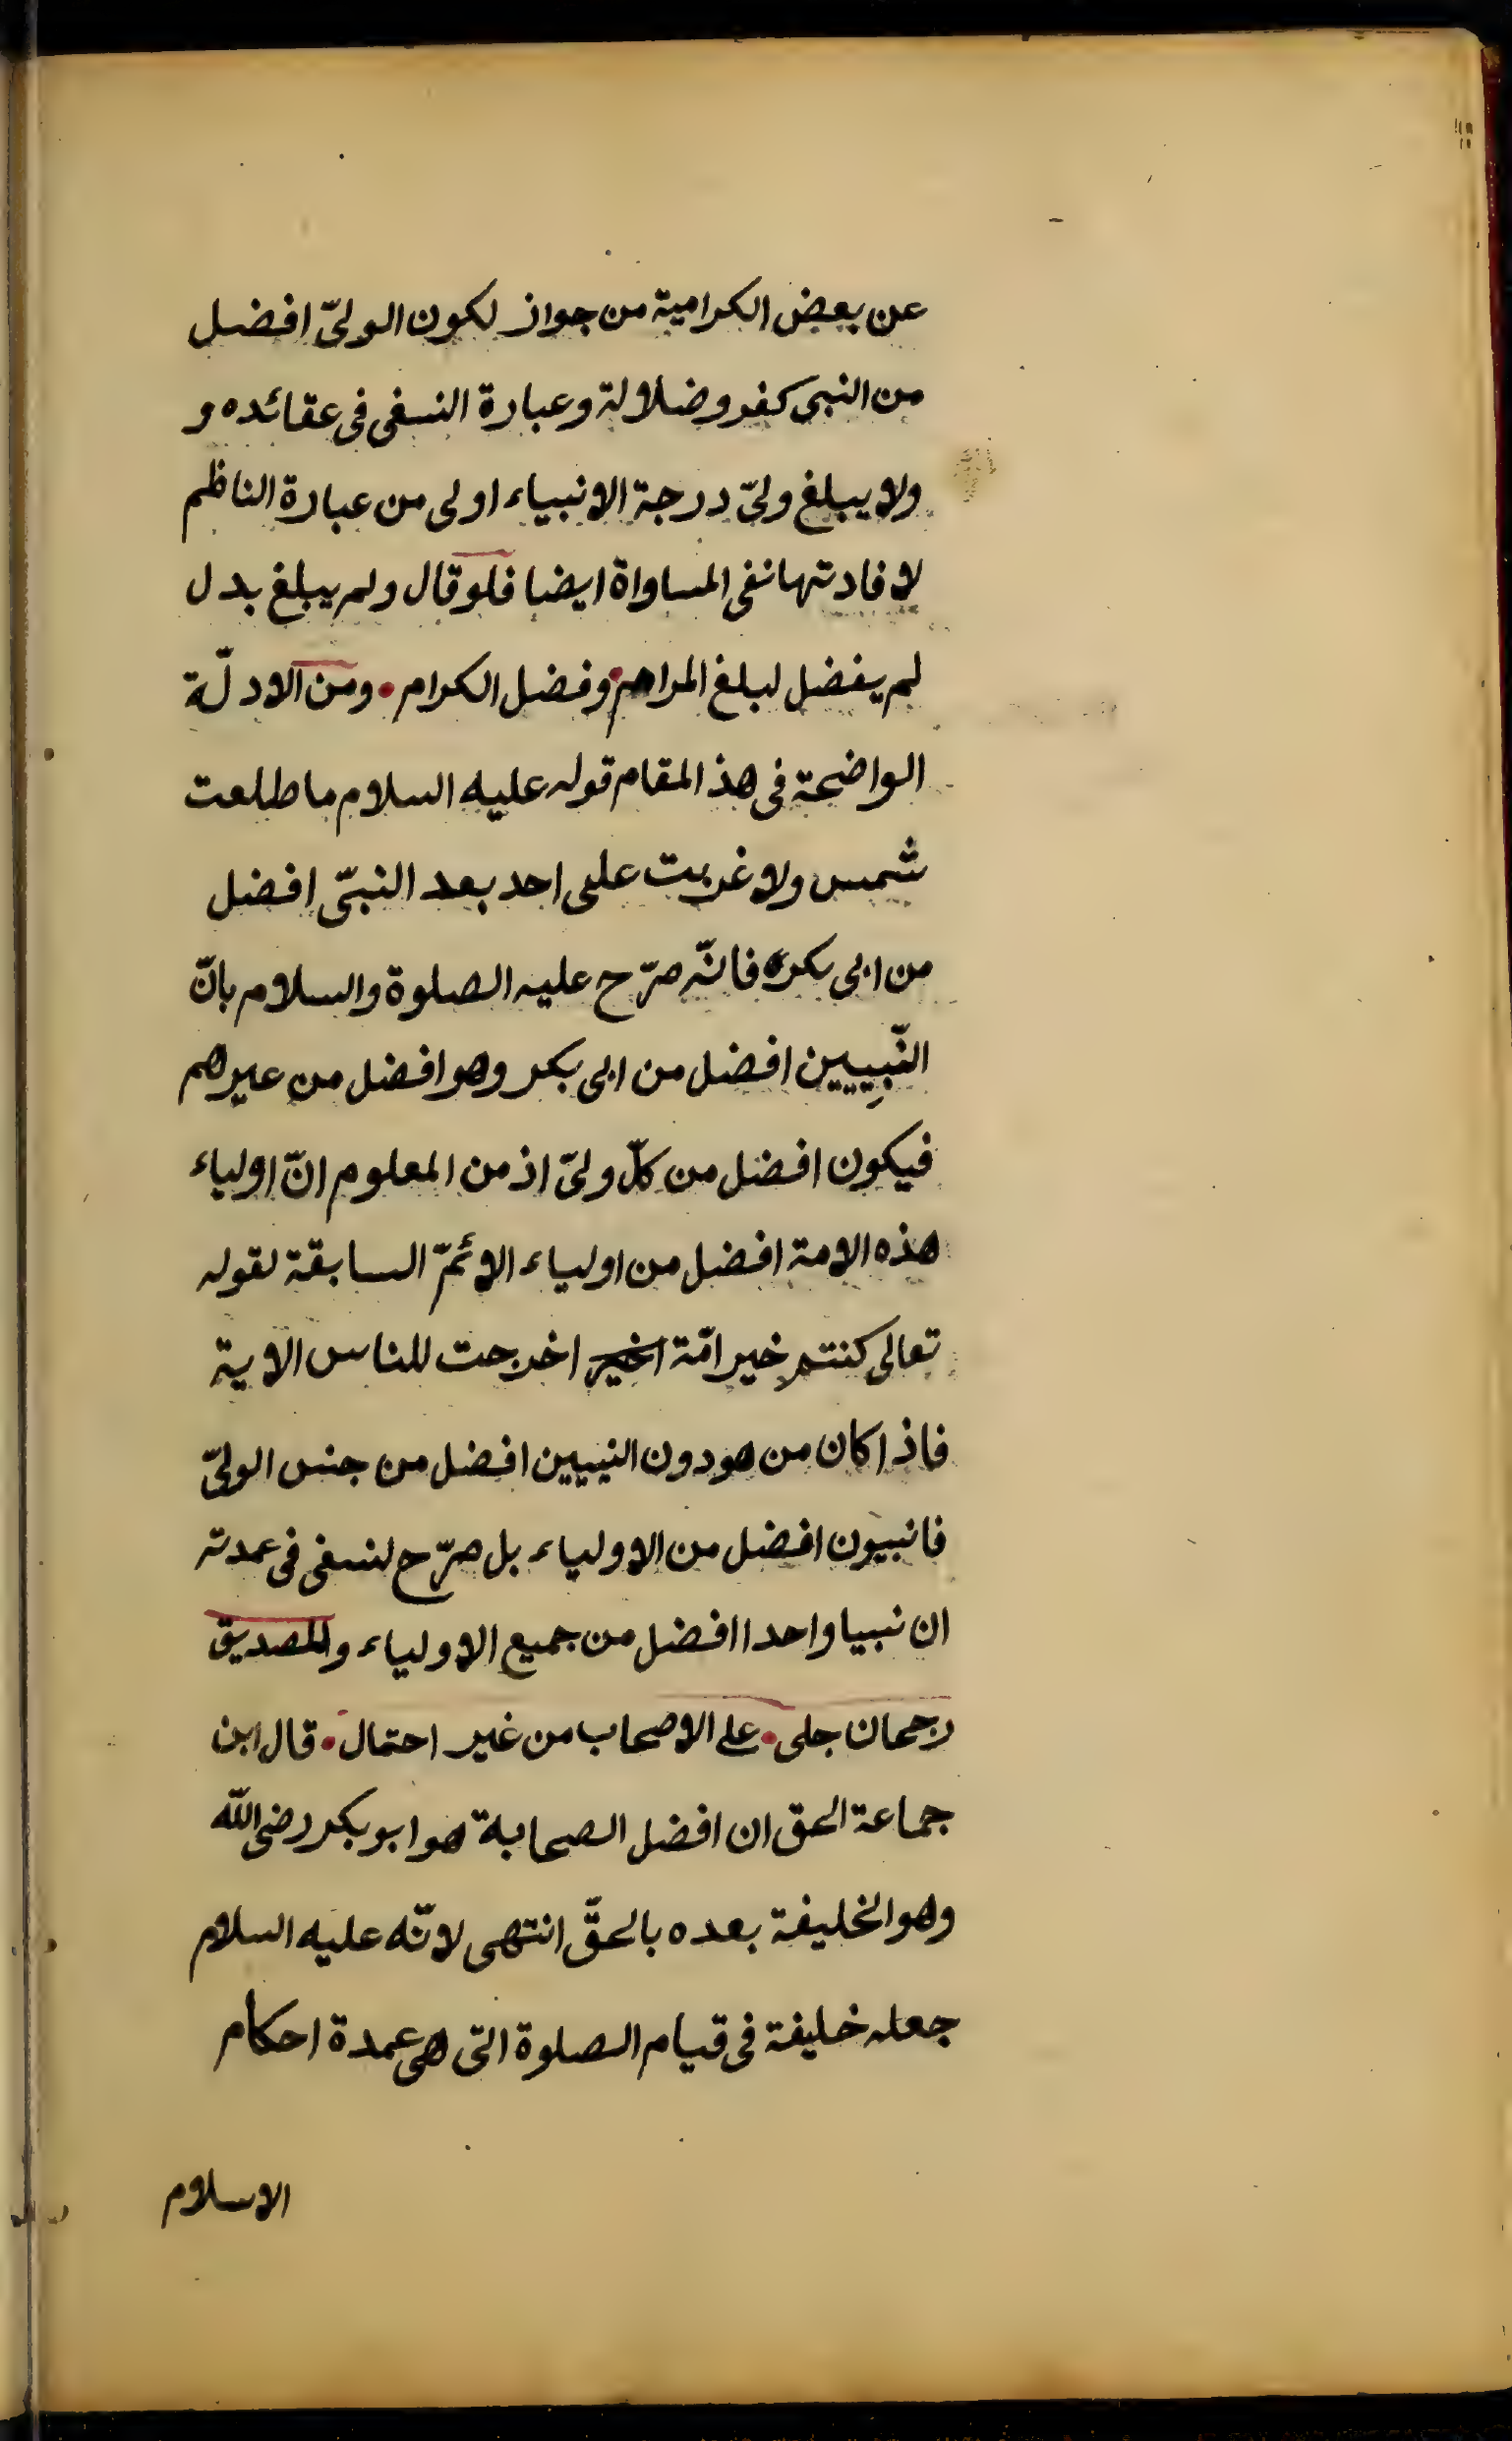 عن بعض الكرامية من جواز لكون الولىّ افضل
من النبى كفر وضلالة وعبارة النسفى فى عقائده و
ولا يبلغ ولىّ درجة الانبياء اولى من عبارة الناظم
لافادتها نفى المساواة ايضا فلو قال ولم يبلغ بدل
لم يفضل لبلغ المرام وفضل الكرام ومن الادلّة
الواضحة فى هذ المقام قوله عليه السلام ما طلعت
شمس ولا غربت على احد بعد النبىّ افضل
من ابى بكر فانّه صرّح عليه الصلوة والسلام بانّ
النّبِييين افضل من ابى بكر وهو افضل من عيرهم
فيكون افضل من كلّ ولىّ اذ من المعلوم انّ اولياء
هذه الامة افضل من اولياء الائمّ السابقة لقوله
تعالى كنتم خير امّة اخرجت للناس الاية
فاذا كان من هو دون النبيين افضل من جنس الولىّ
فانبيون افضل من الاولياء بل صرّح لنسفى فى عمدته
ان نبيا واحدا افضل من جميع الاولياء وللصديق
رجحان جلى على الاصحاب من غير احتمال قال ابن
جماعة الحق ان افضل الصحابة هو ابو بكر رضى الله
وهو الخليفة بعده بالحقّ انتهى لانّه عليه السلام
جعله خليفة فى قيام الصلوة التى هى عمدة احكام
الاسلام